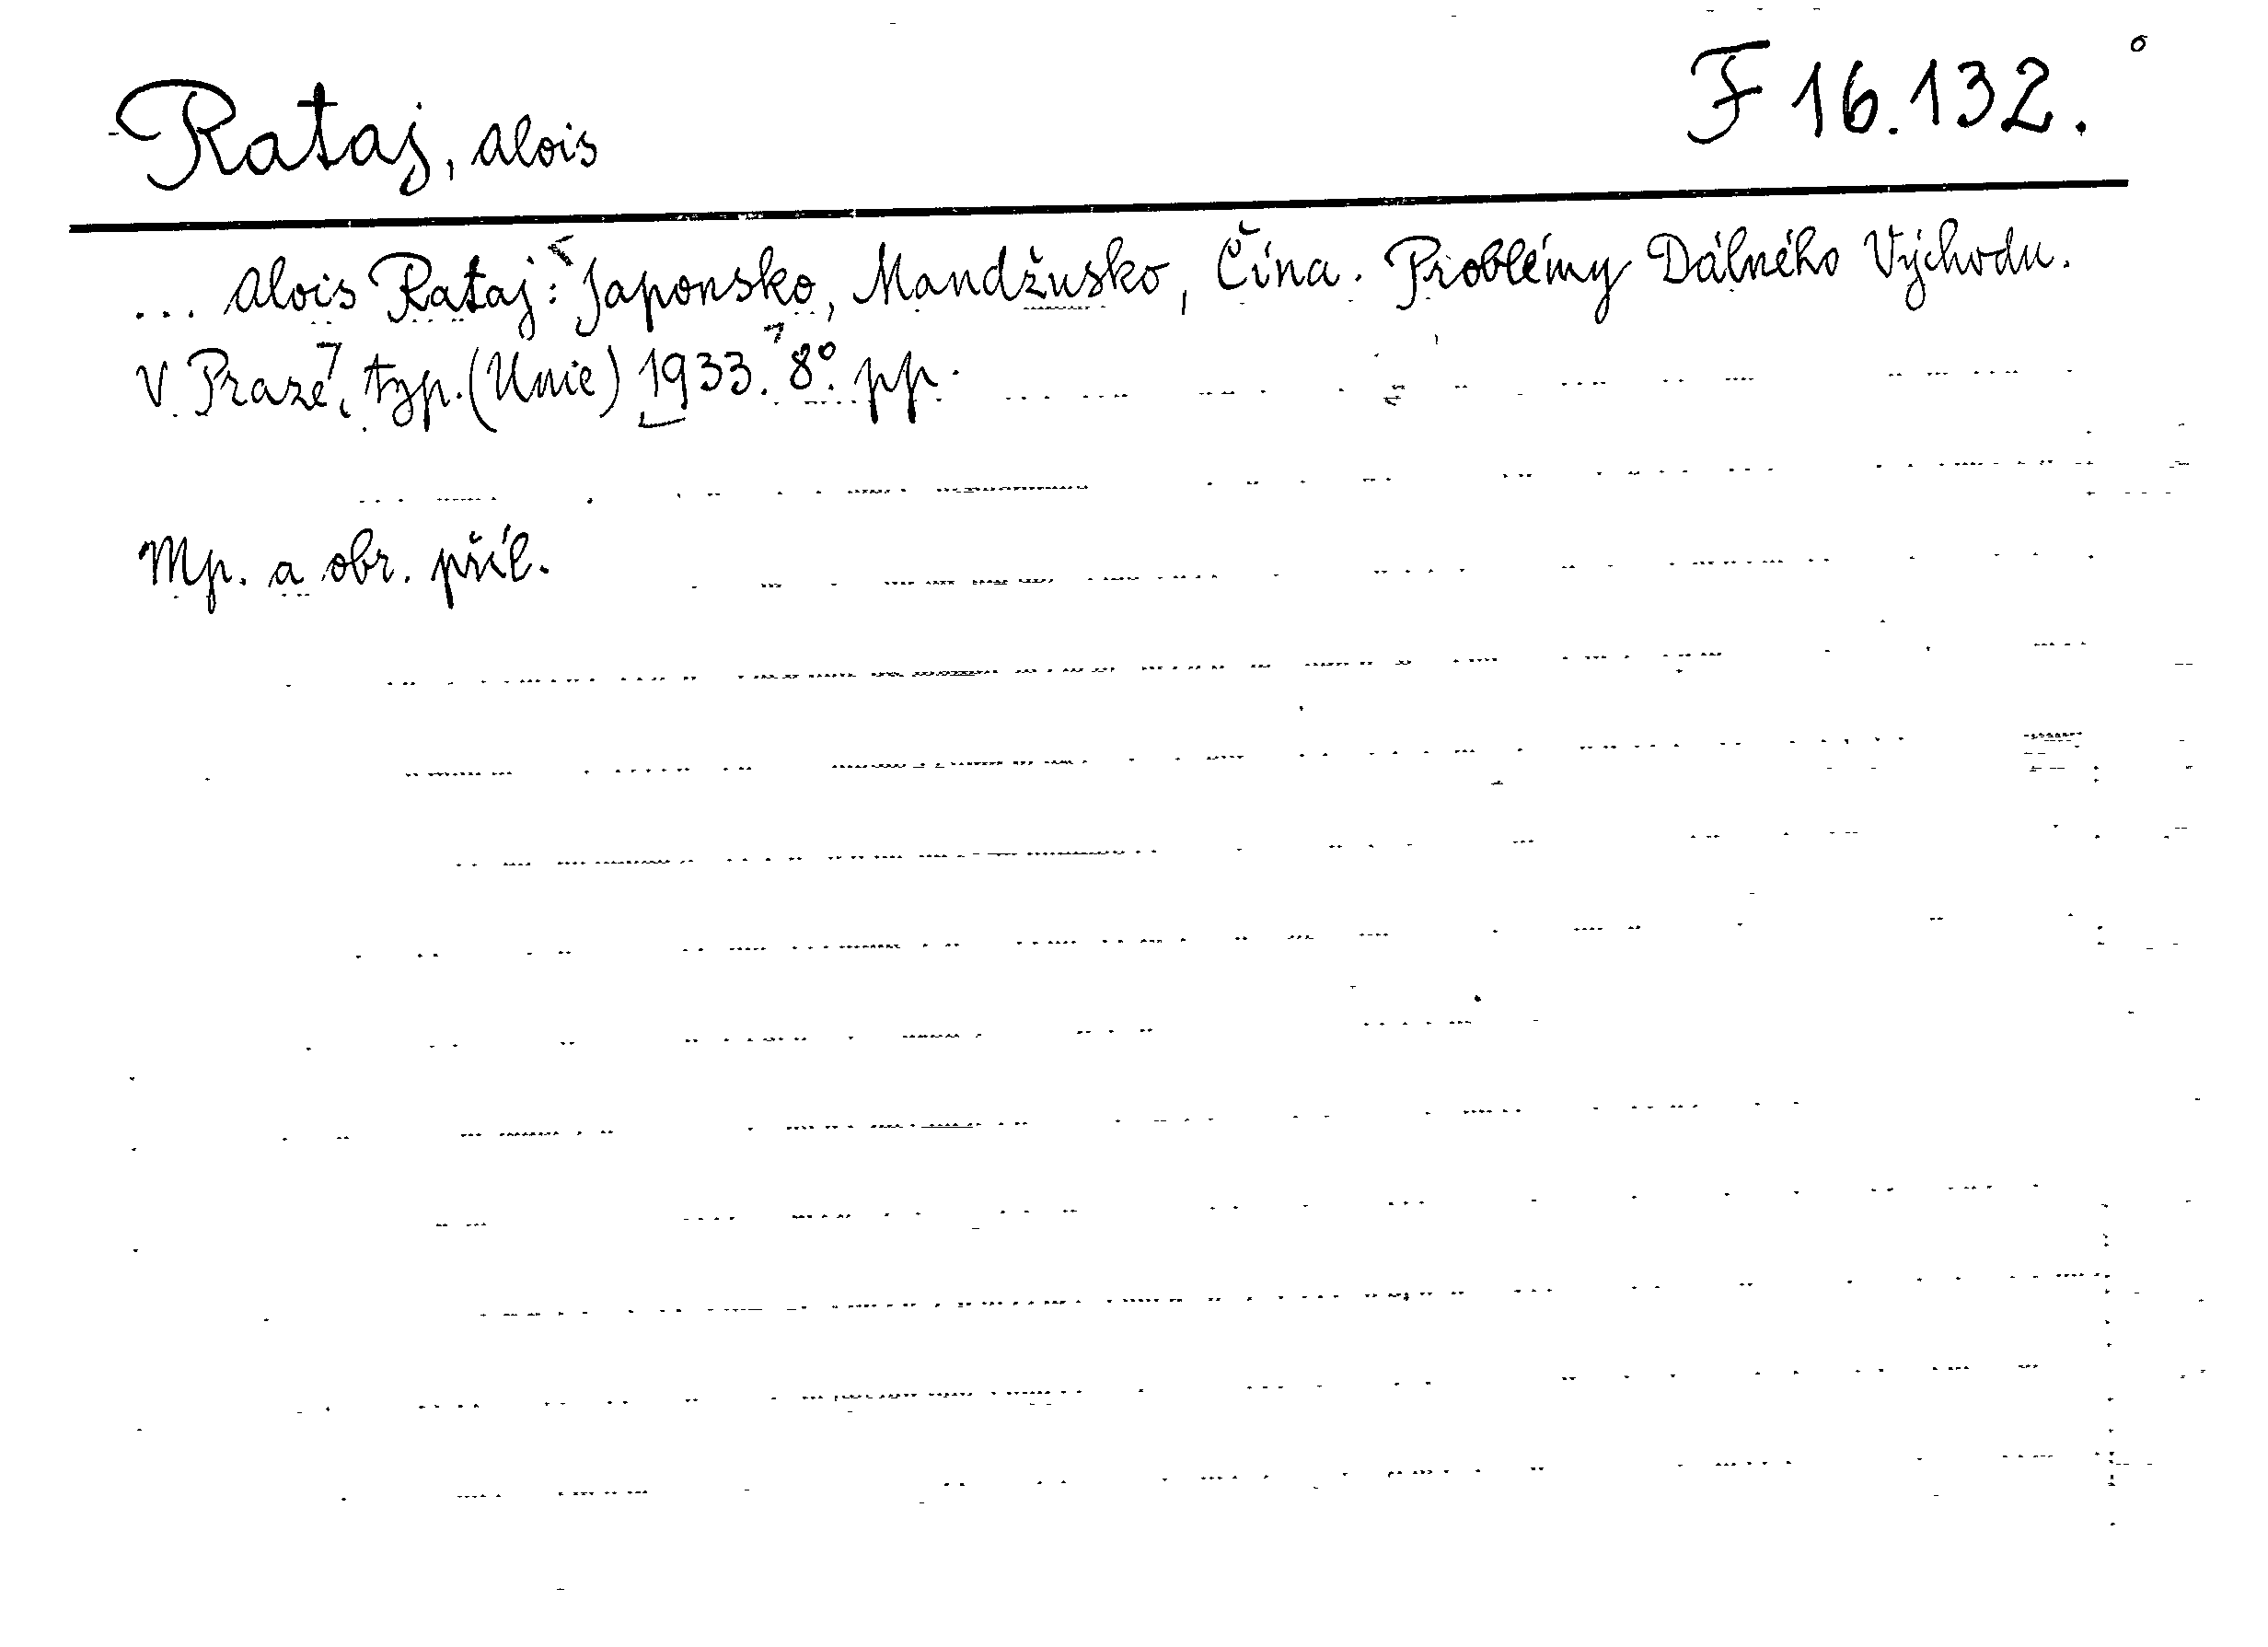 Rataj, Alois
F 16.132.
... Alois Rataj: Japonsko, Mandžusko, Čína. Problémy Dálného Východu.
V Praze, typ. (Unie) 1933. 8°. pp.
Mp. a obr. příl.